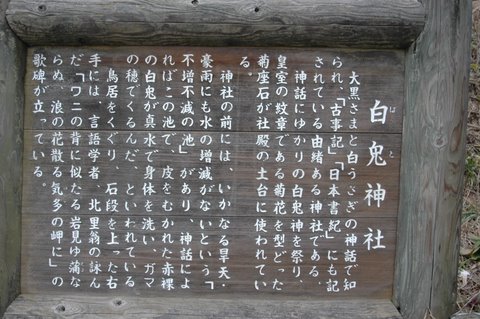 白兎神社
はくと
大黒さまと白うさぎの神話で知
られ、「古事記」「日本書紀」にも記
されている由緒ある神社である、
神話にゆかりの白兎神を祭り、
皇室の紋章である菊花を型どった
菊座石が社殿の土台に使われてい
る。
神社の前には、いかなる旱天・
豪雨にも水の増減がないという「
不増不減の池」があり、神話によ
ればこの池で、皮をむかれた赤裸
の白兎が真水で身体を洗い、ガマ
の穂でくるんだ、といわれている
鳥居をくぐり、石段を上った右
手には、言語学者、北里翁の詠ん
だ「ワニの背に似たる岩見ゆ蒲な
らぬ、浪の花散る気多の岬に」の
歌碑が立っている。